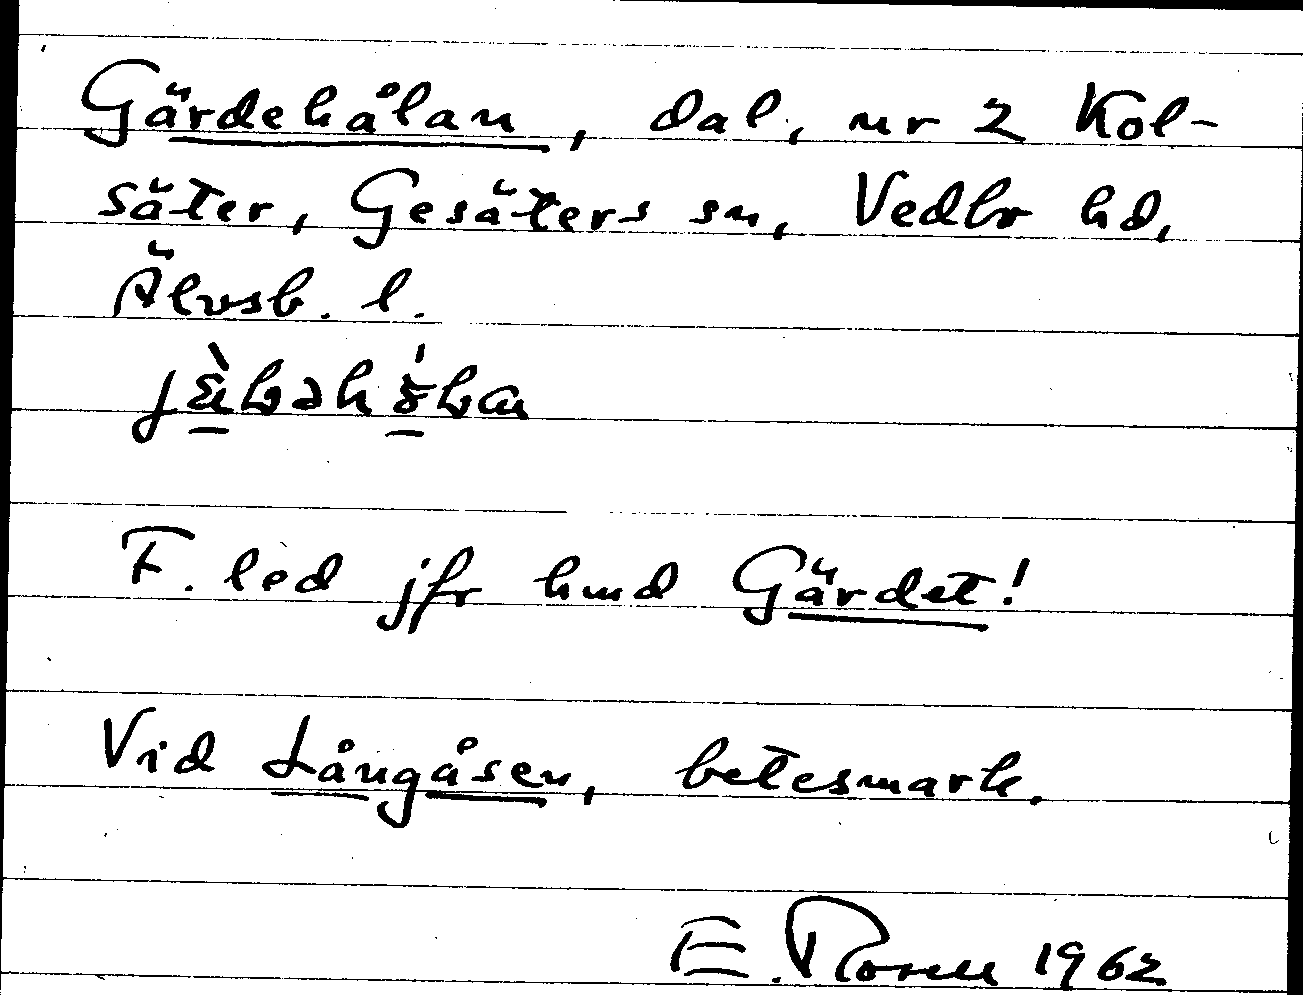 Gärdehålan, dal, nr 2 Kol-
säter, Gesäters sn, Vedbo hd,
Älvsb. l.
F. led jfr hmd Gärdet!
Vid Långåsen, betesmark.
E. Rosell 1962